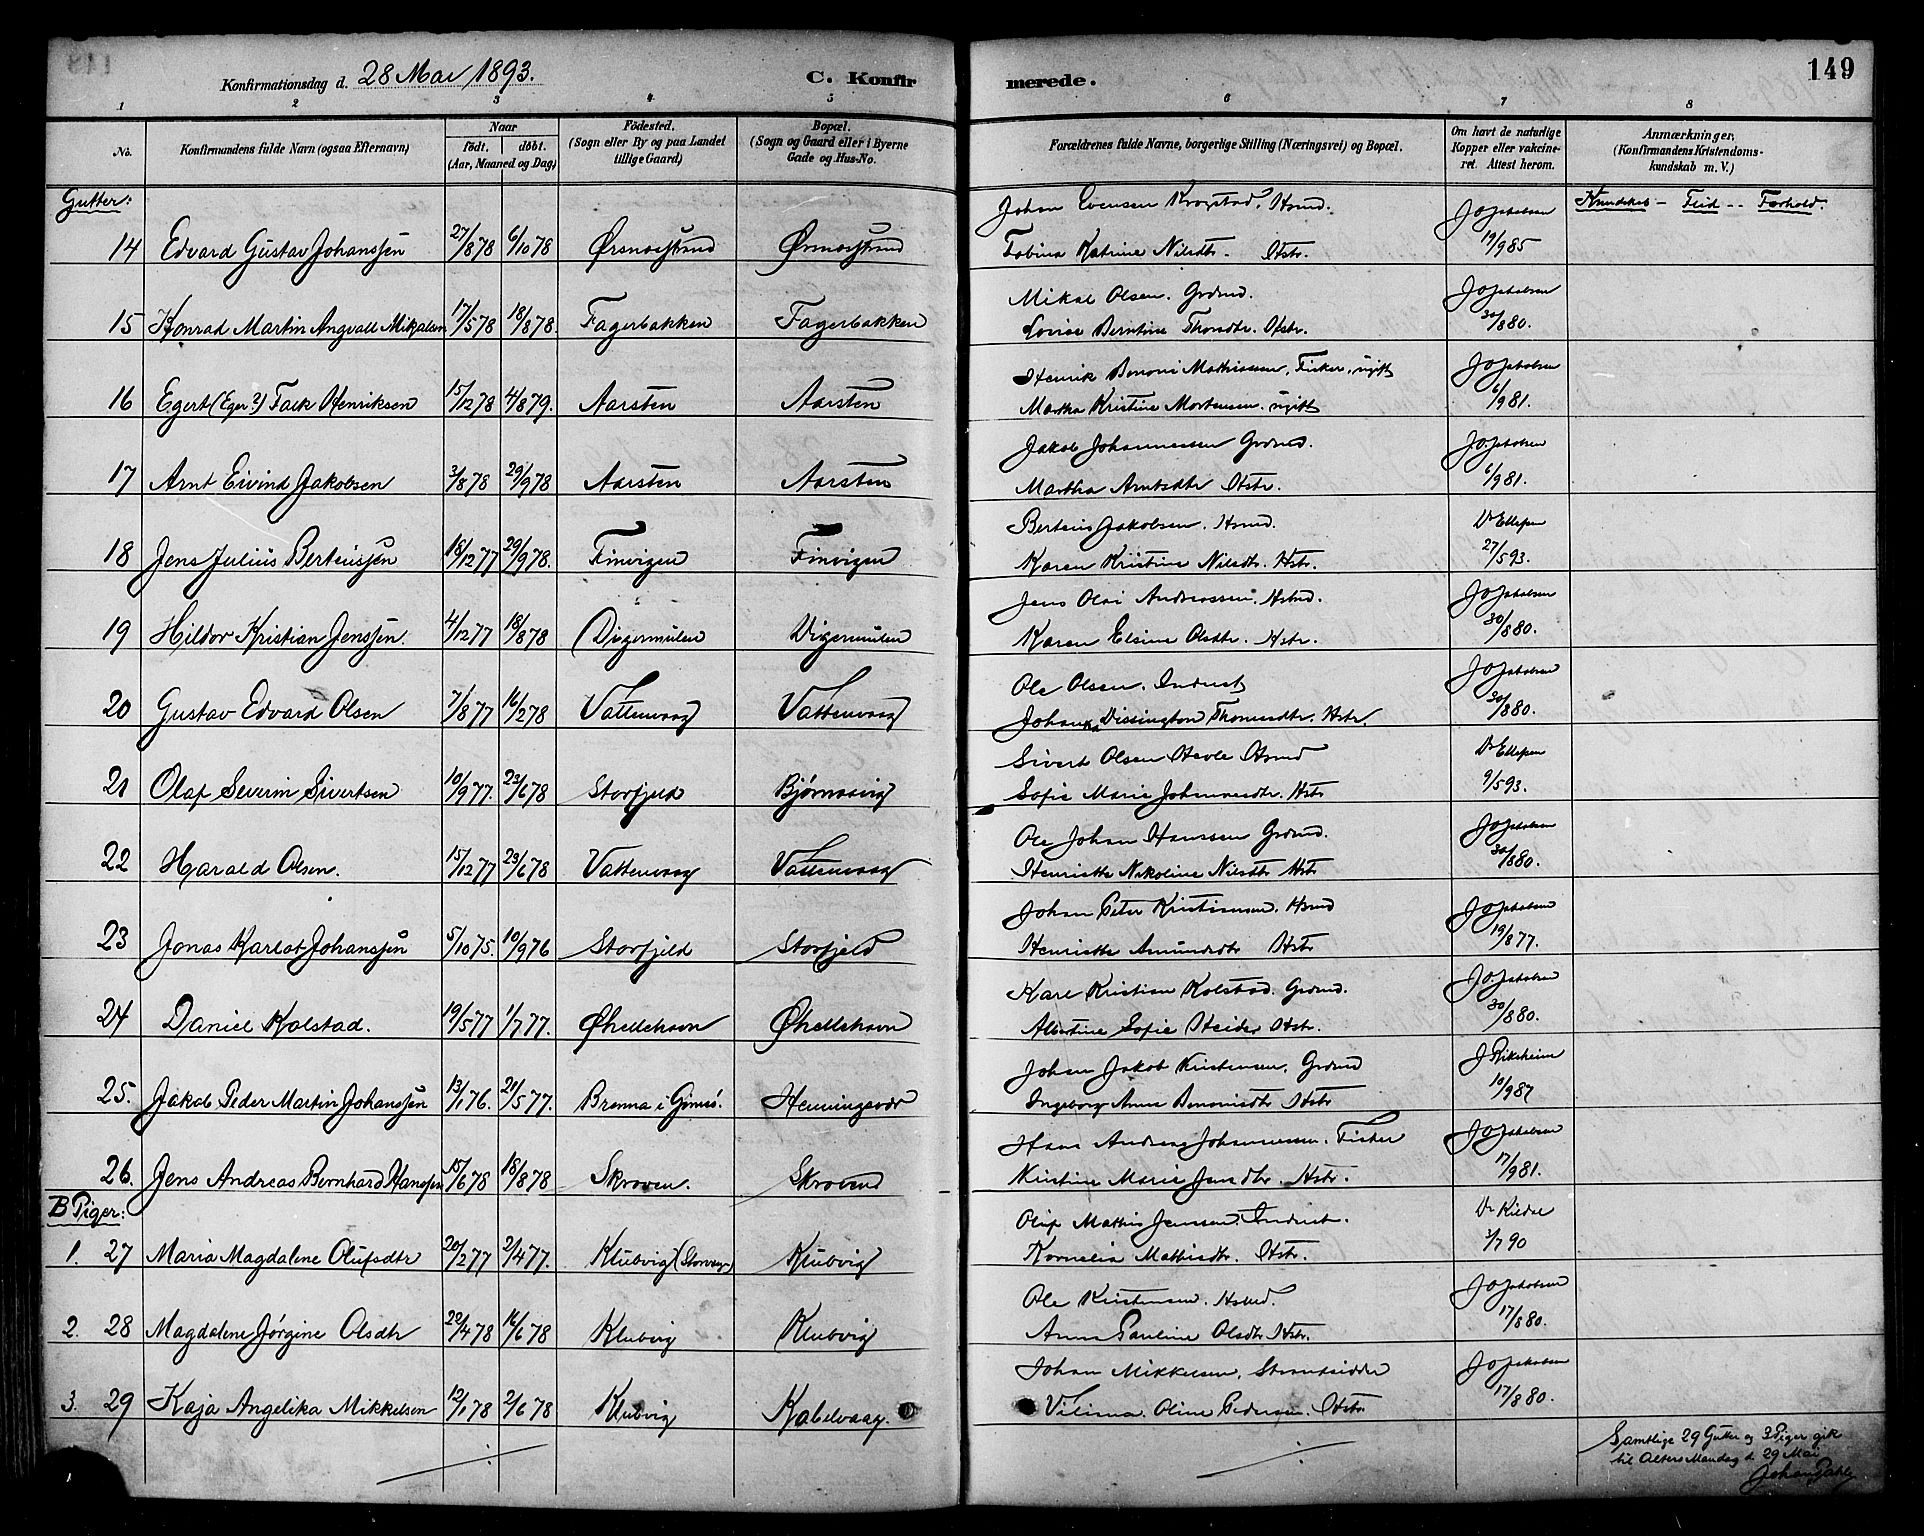 149
Konfirmationsdag d. 28 Mai 1893.
C. Konfirmerede.
1 2 3 4 5 6 7 8
No.
Konfirmandens fulde Navn (ogsaa Efternavn)
Naar
født. døbt.
(Aar, Maaned og Dag)
Fødested.
(Sogn eller By og paa Landet
tillige Gaard)
Bopæl.
(Sogn og Gaard eller i Byerne
Gade og Hus-No.
Forældrenes fulde Navne, borgerlige Stilling (Næringsvei) og Bopæl.
Om havt de naturlige
Kopper eller vakcine-
ret. Attest herom.
Anmærkninger,
(Konfirmandens Kristendoms-
kundskab m. V.)
Gutter:
Kundskab - Flid - Forhold.
14 Edvard Gustav Johanssen 27/8 78 6/10 78 Ørsnesstrand Ørsnesstrand
Johan Evensen Krogstad, Hsmd.
Tobina Katrine Nilsdtr. Hstr.
JOJakobsen 19/9 85
15 Konrad Martin Angvalt Mikalsen 17/5 78 18/8 78. Fagerbakken Fagerbakken
Mikal Olsen. Grdmd.
Lovise Berntine Thomdtr. Hstr.
JOJakobsen 30/8 80.
16 Egert (Eger?) Falk Henriksen 15/12 78 4/8 79. Aarsten Aarsten
Henrik Benoni Mathiassen, Fisker, ugift
Martha Kristine Mortensen. ugift
JOJakobsen 6/9 81.
17 Arnt Eivind Jakobsen 3/8 78 29/9 78 Aarsten Aarsten
Jakob Johannessen Grdmd.
Martha Arntsdtr Hstr.
J.O.Jakobsen 6/9 81.
18 Jens Julius Berteussen 18/12 77 29/9 78. Finvigen Finvigen
Berteus Jakobsen. Hsmd.
Karen Kristine Nilsdtr. Hstr.
Dr Ellefsen 27/5 93.
19 Hildor Kristian Jenssen. 4/12 77 18/8 78 Digermulen Digermulen
Jens Olai Andreassen. Hsmd.
Karen Elsine Olsdtr. Hstr.
JOJakobsen 30/8 80.
20 Gustav Edvard Olsen 7/8 77 16/2 78 Vattenvaag Vattenvaag
Ole Olsen. Inderst
Johanna Dissington Thomasdtr. Hstr.
JOJakobsen 30/8 80.
21 Olaf Severin Sivertsen 10/9 77. 23/6 78 Storfjeld Bjørnsvig
Sivert Olsen Hevle Hsmd
Sofie Marie Johannesdtr. Hstr
Dr Ellefsen 9/5 93.
22 Harald Olsen. 15/12 77 23/6 78 Vattenvaag Vattenvaag
Ole Johan Hanssen Grdmd.
Henriette Nikoline Nilsdtr Hstr
JOJakobsen 30/8 80.
23 Jonas Karlot Johanssen 5/10 75. 10/9 76 Storfjeld Storfjeld
Johan Peter Kristiansen. Hsmd
Henriette Amundsdtr Hstr
JOJakobsen 19/8 77.
24 Daniel Kolstad. 19/5 77 1/7 77. Øhellehavn Øhellehavn
Karl Kristian Kolstad. Grdmd.
Albertine Sofie Heider Hstr.
JOJakobsen 30/8 80.
25. Jakob Peder Martin Johanssen 13/1 76. 21/5 77. Brenna i Gimsø. Henningsvær
Johan Jakob Kristensen, Grdmd
Ingeborg Anna Benonisdtr Hstr
J Riksheim 10/9 87
26. Jens Andreas Bernhard Hanssen 15/6 78 18/8 78 Skroven. Skroven
Hans Andreas Johannessen. Fisker
Kristine Marie Jensdtr. Hstr.
JOJakobsen 17/9 81.
B Piger:
1. 27 Maria Magdalene Olufsdtr 20/2 77 2/4 77. Klubvig (Storvaag) Klubvig
Oluf Mathis Jenssen. Inderst.
Kornelia Mathisdtr. Hstr.
Dr Kildal 3/7 90
2. 28 Magdalene Jørgine Olsdtr 20/4 78 16/6 78 Klubvig Klubvig
Ole Kristensen. Hsmd.
Anna Pauline Olsdtr Hstr.
JOJakobsen 17/8 80.
3. 29 Kaja Angelika Mikkelsen 12/1 78 2/6 78 Klubvig Kabelvaag.
Johan Mikkelsen, Strandsidder
Vilima. Oline Pedersen. Hstr.
JOJakobsen 17/8 80.
Samtlige 29 Gutter og 3 Piger gik
til Alters Mandag d. 29 Mai